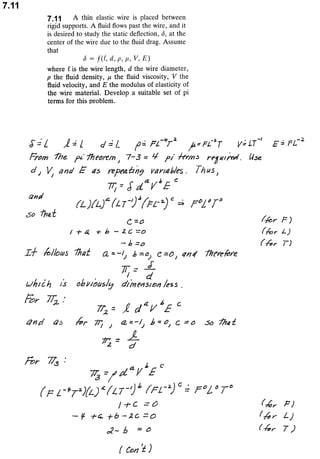 7.11
7.11 A thin elastic wire is placed between
rigid supports. A fluid flows past the wire, and it
is desired to study the static deflection, δ, at the
center of the wire due to the fluid drag. Assume
that
δ = f(ℓ, d, ρ, μ, V, E)
where ℓ is the wire length, d the wire diameter,
ρ the fluid density, μ the fluid viscosity, V the
fluid velocity, and E the modulus of elasticity of
the wire material. Develop a suitable set of pi
terms for this problem.
δ ≐ L ℓ ≐ L d ≐ L ρ ≐ FL⁻⁴T² μ ≐ FL⁻²T V ≐ LT⁻¹ E ≐ FL⁻²
From the pi theorem, 7-3 = 4 pi terms required. Use
d, V, and E as repeating variables. Thus,
π₁ = δ dᵃ Vᵇ Eᶜ
and
(L)(L)ᵃ(LT⁻¹)ᵇ(FL⁻²)ᶜ ≐ F⁰L⁰T⁰
so that
c = 0 (for F)
1 + a + b - 2c = 0 (for L)
-b = 0 (for T)
It follows that a = -1, b = 0, c = 0, and therefore
π₁ = δ/d
which is obviously dimensionless.
For π₂:
π₂ = ℓ dᵃ Vᵇ Eᶜ
and as for π₁, a = -1, b = 0, c = 0 so that
π₂ = ℓ/d
For π₃:
π₃ = ρ dᵃ Vᵇ Eᶜ
(FL⁻⁴T²)(L)ᵃ(LT⁻¹)ᵇ(FL⁻²)ᶜ ≐ F⁰L⁰T⁰
1 + c = 0 (for F)
-4 + a + b - 2c = 0 (for L)
2 - b = 0 (for T)
(con't)